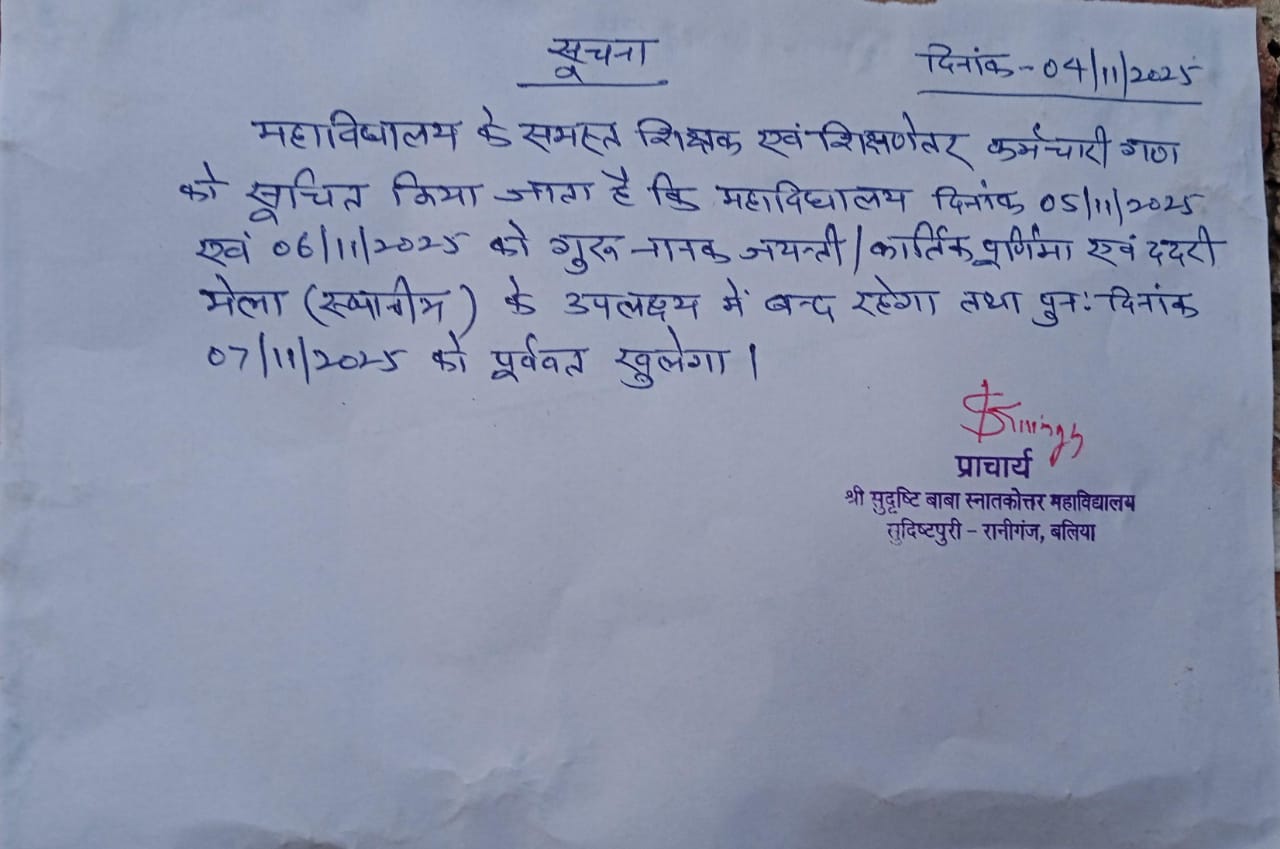 सूचना
दिनांक - 04/11/2025
महाविद्यालय के समस्त शिक्षक एवं शिक्षणेतर कर्मचारी गण
को सूचित किया जाता है कि महाविद्यालय दिनांक 05/11/2025
एवं 06/11/2025 को गुरु नानक जयन्ती/कार्तिक पूर्णिमा एवं ददरी
मेला (स्थानीय) के उपलक्ष्य में बन्द रहेगा तथा पुनः दिनांक
07/11/2025 को पूर्ववत खुलेगा।
प्राचार्य
श्री सुदृष्टि बाबा स्नातकोत्तर महाविद्यालय
सुदिष्टपुरी - रानीगंज, बलिया